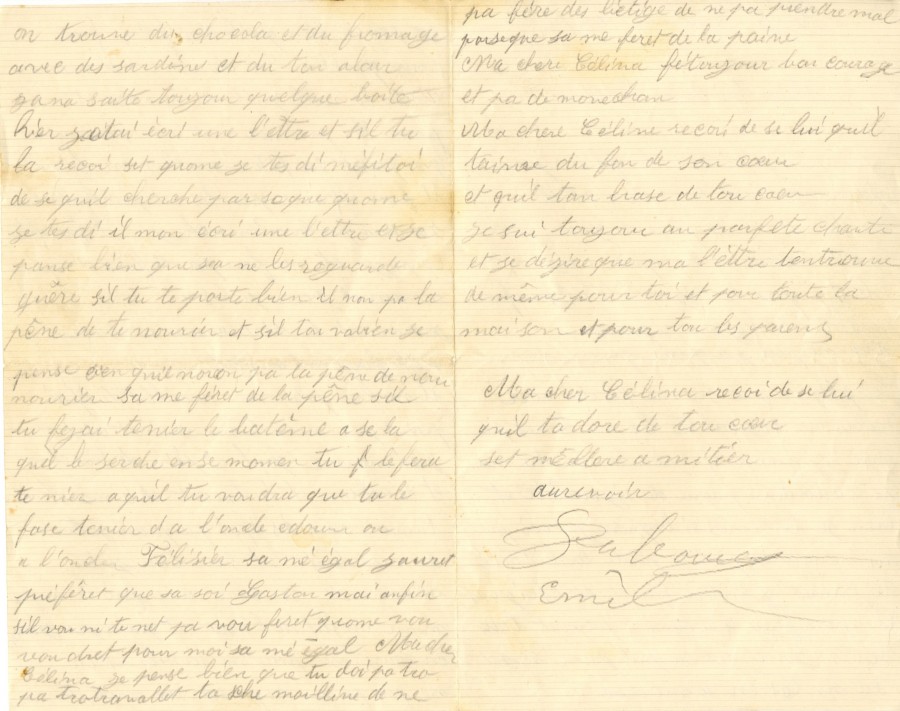 on trouve du chocola et du fromage
avec des sardine et du ton alor
sa na saite toujour quelque boite
hier je tai écri une l'ettre et sil tu
la recoi set quome je tes di méfitoi
de se quil cherche par se que quome
je tes di il mon écri une l'ettre et je
panse bien que sa ne les roguarde
quêre sil tu te porte bien il non pa la
pêne de te nourir et sil ton rabien je
pense bien quil noron pa la pêne de
nourir sa me féret de la pêne sil
tu fezai tenier le batême a se la
quil le serche en se momen tu le fera
te nier a quil tu voudra que tu le
fase tenier d a l'oncle edouar ou
a l'oncle Félisier sa mé égal jauret
préféret que sa soi Gaston mai anfin
sil vou ni te net pa vou feret quome vou
voudret pour moi sa mé égal Ma cher
Célina je pense bien que tu doi pa tro
pa tro travallet ta che moilline de ne
pa fére des bétige de ne pa prendre mal
parseque sa me feret de la paine
Ma chere Célina fé toujour bon courage
et pa de monechan
Ma chere Céline recoi de se lui quil
taime du fon de son cœur
et quil tan brase de tou cœur
je sui toujour au parfète chante
et je dézire que ma l'éttre tentrouve
de même pour toi et pour toute la
maison et pour tou les parens
Ma cher Célina recoi de se lui
quil tadore de tou cœur
set méllere a mitier
aurevoir
Emile